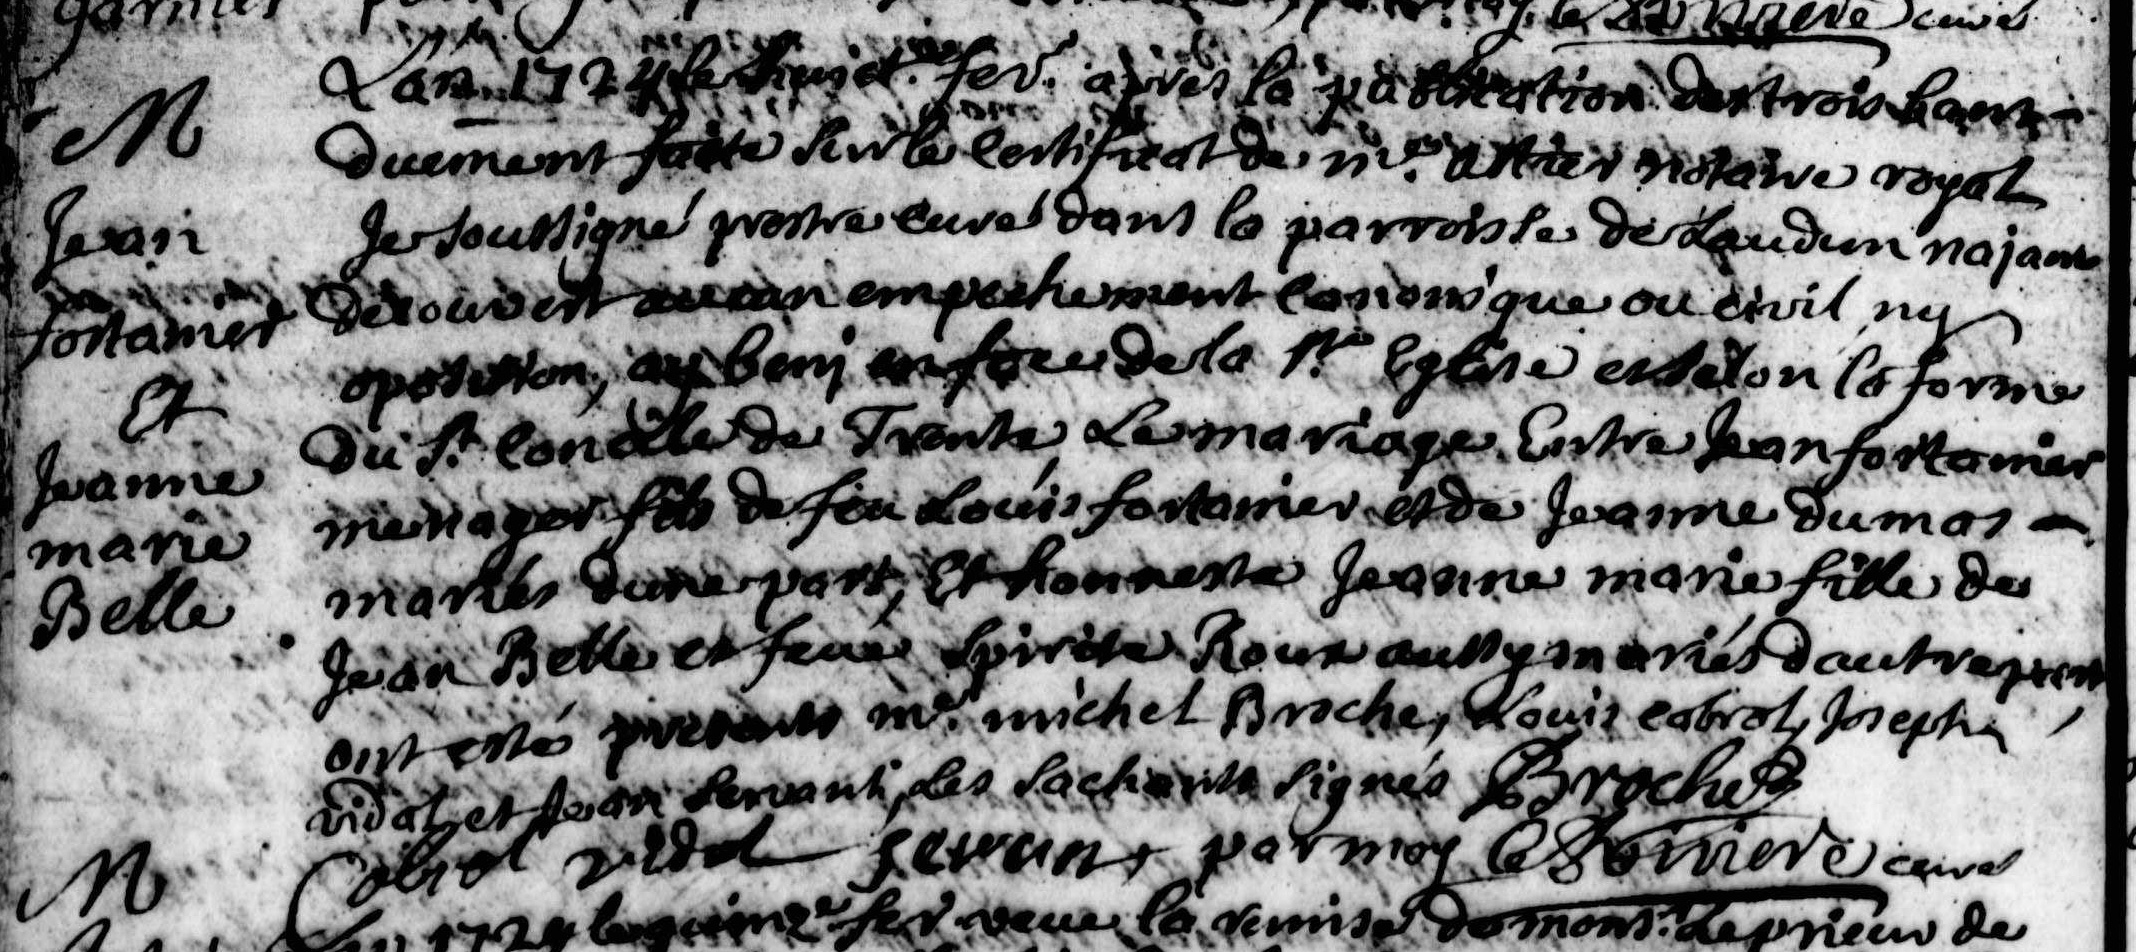 garnier
curé
L'an 1724 le huict.e fev.r après la publication des trois bans
M
duement faite sur le certificat de m.e notaire royal
Jean
Je soussigné prestre curé dans la parroisse de Laudun najant
fortanier
decouvert aucun empechement canonique ou civil ny
oposition, ay beni en face de la s.te Eglise et selon la forme
Et
du s.t concille de Trente Le mariage Entre Jean fortanier
Jeanne
menager fils de feu Louis fortanier et de Jeanne dumas
marie
mariés dune part, Et honneste Jeanne marie fille de
Belle
Jean Belle et feue Spirite Roux aussy mariés dautre part
ont estés presents m.e michel Broche, Louis cobrol, Joseph
vidal, et Jean servant, les sachants signés Broche
Cobrol vidal servant par moy curé
M
1724 le quinz.e fev. veue la remise de mons.r Le prieur de